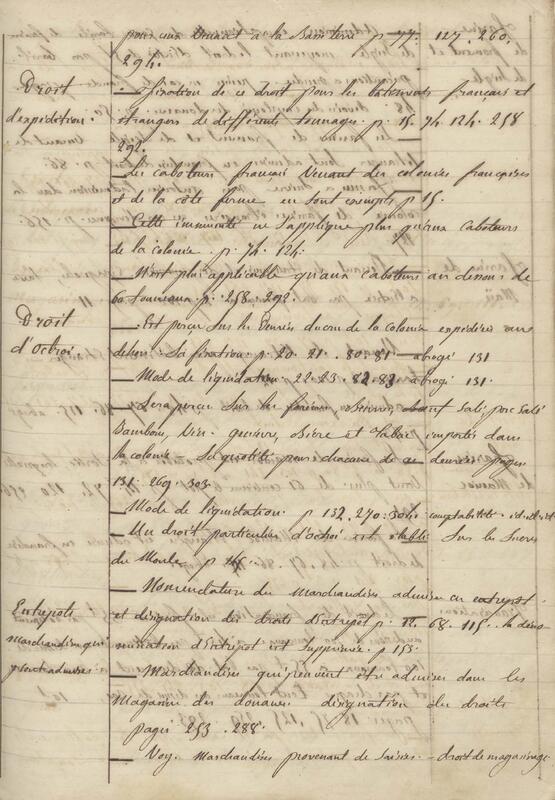 pour ceux venant à la Basseterre p. 77. 127. 260.
294.
Droit
d'expédition.
— fixation de ce droit pour les bâtiments français et
étrangers de différents tonnages. p. 15. 74. 124. 258
292.
— Les caboteurs français venant des colonies françaises
et de la côte ferme en sont exempts p. 15.
— Cette immunité ne s'applique plus qu'aux caboteurs
de la colonie. p. 74. 124.
— N'est plus applicable qu'aux caboteurs au dessous de
60 tonneaux p. 258. 292.
Droit
d'Octroi
— Est perçu sur les denrées du cru de la colonie expédiées au
dehors. Sa fixation. p. 20. 21. 80. 81 — abrogé 131
— Mode de liquidation. 22. 23. 82. 83 abrogé 131.
— Sera perçu sur les farines, beurre, bœuf salé, porc salé
Jambons, Vin. genièvre, bière et Tabac importés dans
la colonie — Sa quotité pour chacune de ces denrées pages
131. 269. 303
— Mode de liquidation. p 132. 270. 304. comptabilité.
— Un droit particulier d'octroi est établi sur les sucres
du Moule. p
Entrepôts
marchandises qui
y sont admises.
— Nomenclature des Marchandises admises en entrepôt
et désignation des droits d'Entrepôt p. 12. 68. 115. la déno-
mination d'Entrepôt est supprimée p. 155.
— Marchandises qui peuvent être admises dans les
Magasins des douanes désignation des droits
pages 253. 288.
— Voy. Marchandises provenant de saisies. — droit de magasinage.